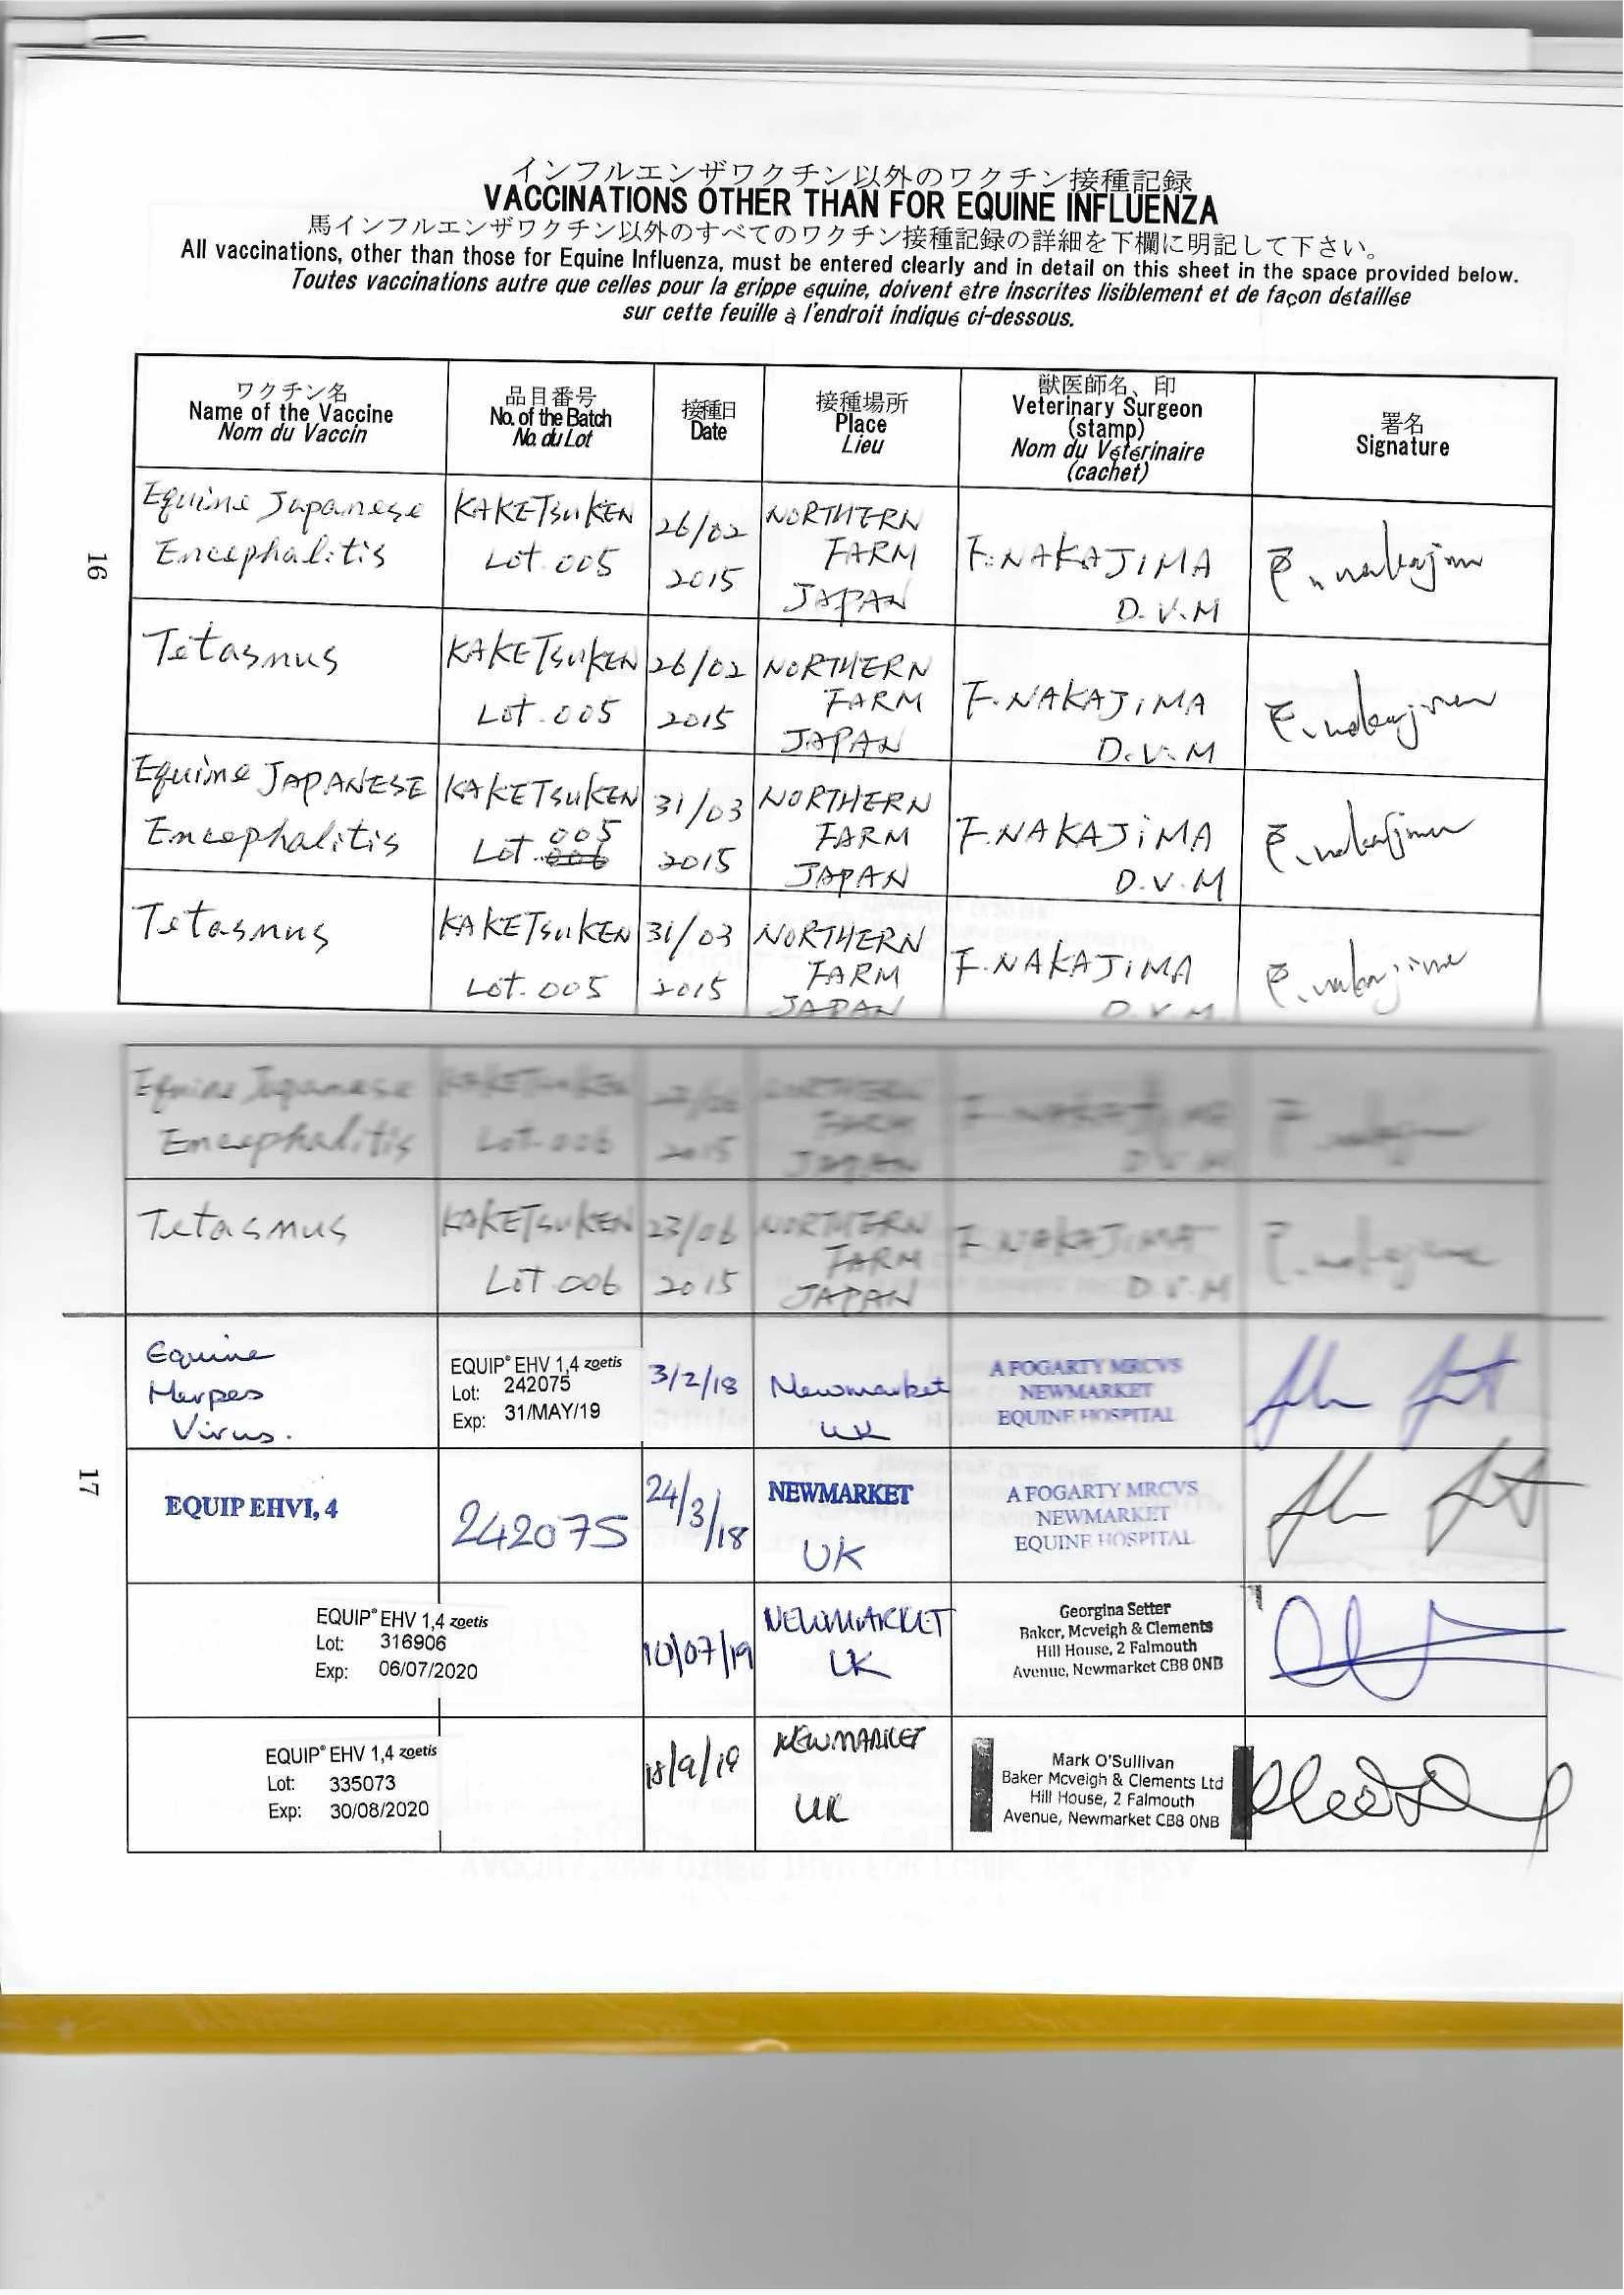 インフルエンザワクチン以外のワクチン接種記録
VACCINATIONS OTHER THAN FOR EQUINE INFLUENZA
馬インフルエンザワクチン以外のすべてのワクチン接種記録の詳細を下欄に明記して下さい。
All vaccinations, other than those for Equine Influenza, must be entered clearly and in detail on this sheet in the space provided below.
Toutes vaccinations autre que celles pour la grippe équine, doivent étre inscrites lisiblement et de façon détaillée
sur cette feuille à l'endroit indiqué ci-dessous.
ワクチン名
Name of the Vaccine
Nom du Vaccin
品目番号
No. of the Batch
No. du Lot
接種日
Date
接種場所
Place
Lieu
獣医師名、印
Veterinary Surgeon
(stamp)
Nom du Vétérinaire
(cachet)
署名
Signature
16
Equine Japanese
Encephalitis
KAKETSUKEN
Lot.005
26/02
2015
NORTHERN
FARM
JAPAN
F.NAKAJIMA
D.V.M
Tetasnus
KAKETSUKEN
Lot.005
26/02
2015
NORTHERN
FARM
JAPAN
F.NAKAJIMA
D.V.M
Equine JAPANESE
Encephalitis
KAKETSUKEN
005
Lot.006
31/03
2015
NORTHERN
FARM
JAPAN
F.NAKAJIMA
D.V.M
Tetasnus
KAKETSUKEN
Lot.005
31/03
2015
NORTHERN
FARM
JAPAN
F.NAKAJIMA
D.V.M
Equine Japanese
Encephalitis
KAKETSUKEN
Lot.006
23/06
2015
NORTHERN
FARM
JAPAN
F.NAKAJIMA
D.V.M
Tetasnus
KAKETSUKEN
Lot.006
23/06
2015
NORTHERN
FARM
JAPAN
F.NAKAJIMA
D.V.M
17
Equine
Herpes
Virus.
EQUIP® EHV 1,4 zoetis
Lot: 242075
Exp: 31/MAY/19
3/2/18
Newmarket
UK
A FOGARTY MRCVS
NEWMARKET
EQUINE HOSPITAL
EQUIP EHVI, 4
242075
24/3/18
NEWMARKET
UK
A FOGARTY MRCVS
NEWMARKET
EQUINE HOSPITAL
EQUIP® EHV 1,4 zoetis
Lot: 316906
Exp: 06/07/2020
10/07/19
NEWMARKET
UK
Georgina Setter
Baker, Mcveigh & Clements
Hill House, 2 Falmouth
Avenue, Newmarket CB8 0NB
EQUIP® EHV 1,4 zoetis
Lot: 335073
Exp: 30/08/2020
18/9/19
NEWMARKET
UK
Mark O'Sullivan
Baker Mcveigh & Clements Ltd
Hill House, 2 Falmouth
Avenue, Newmarket CB8 0NB